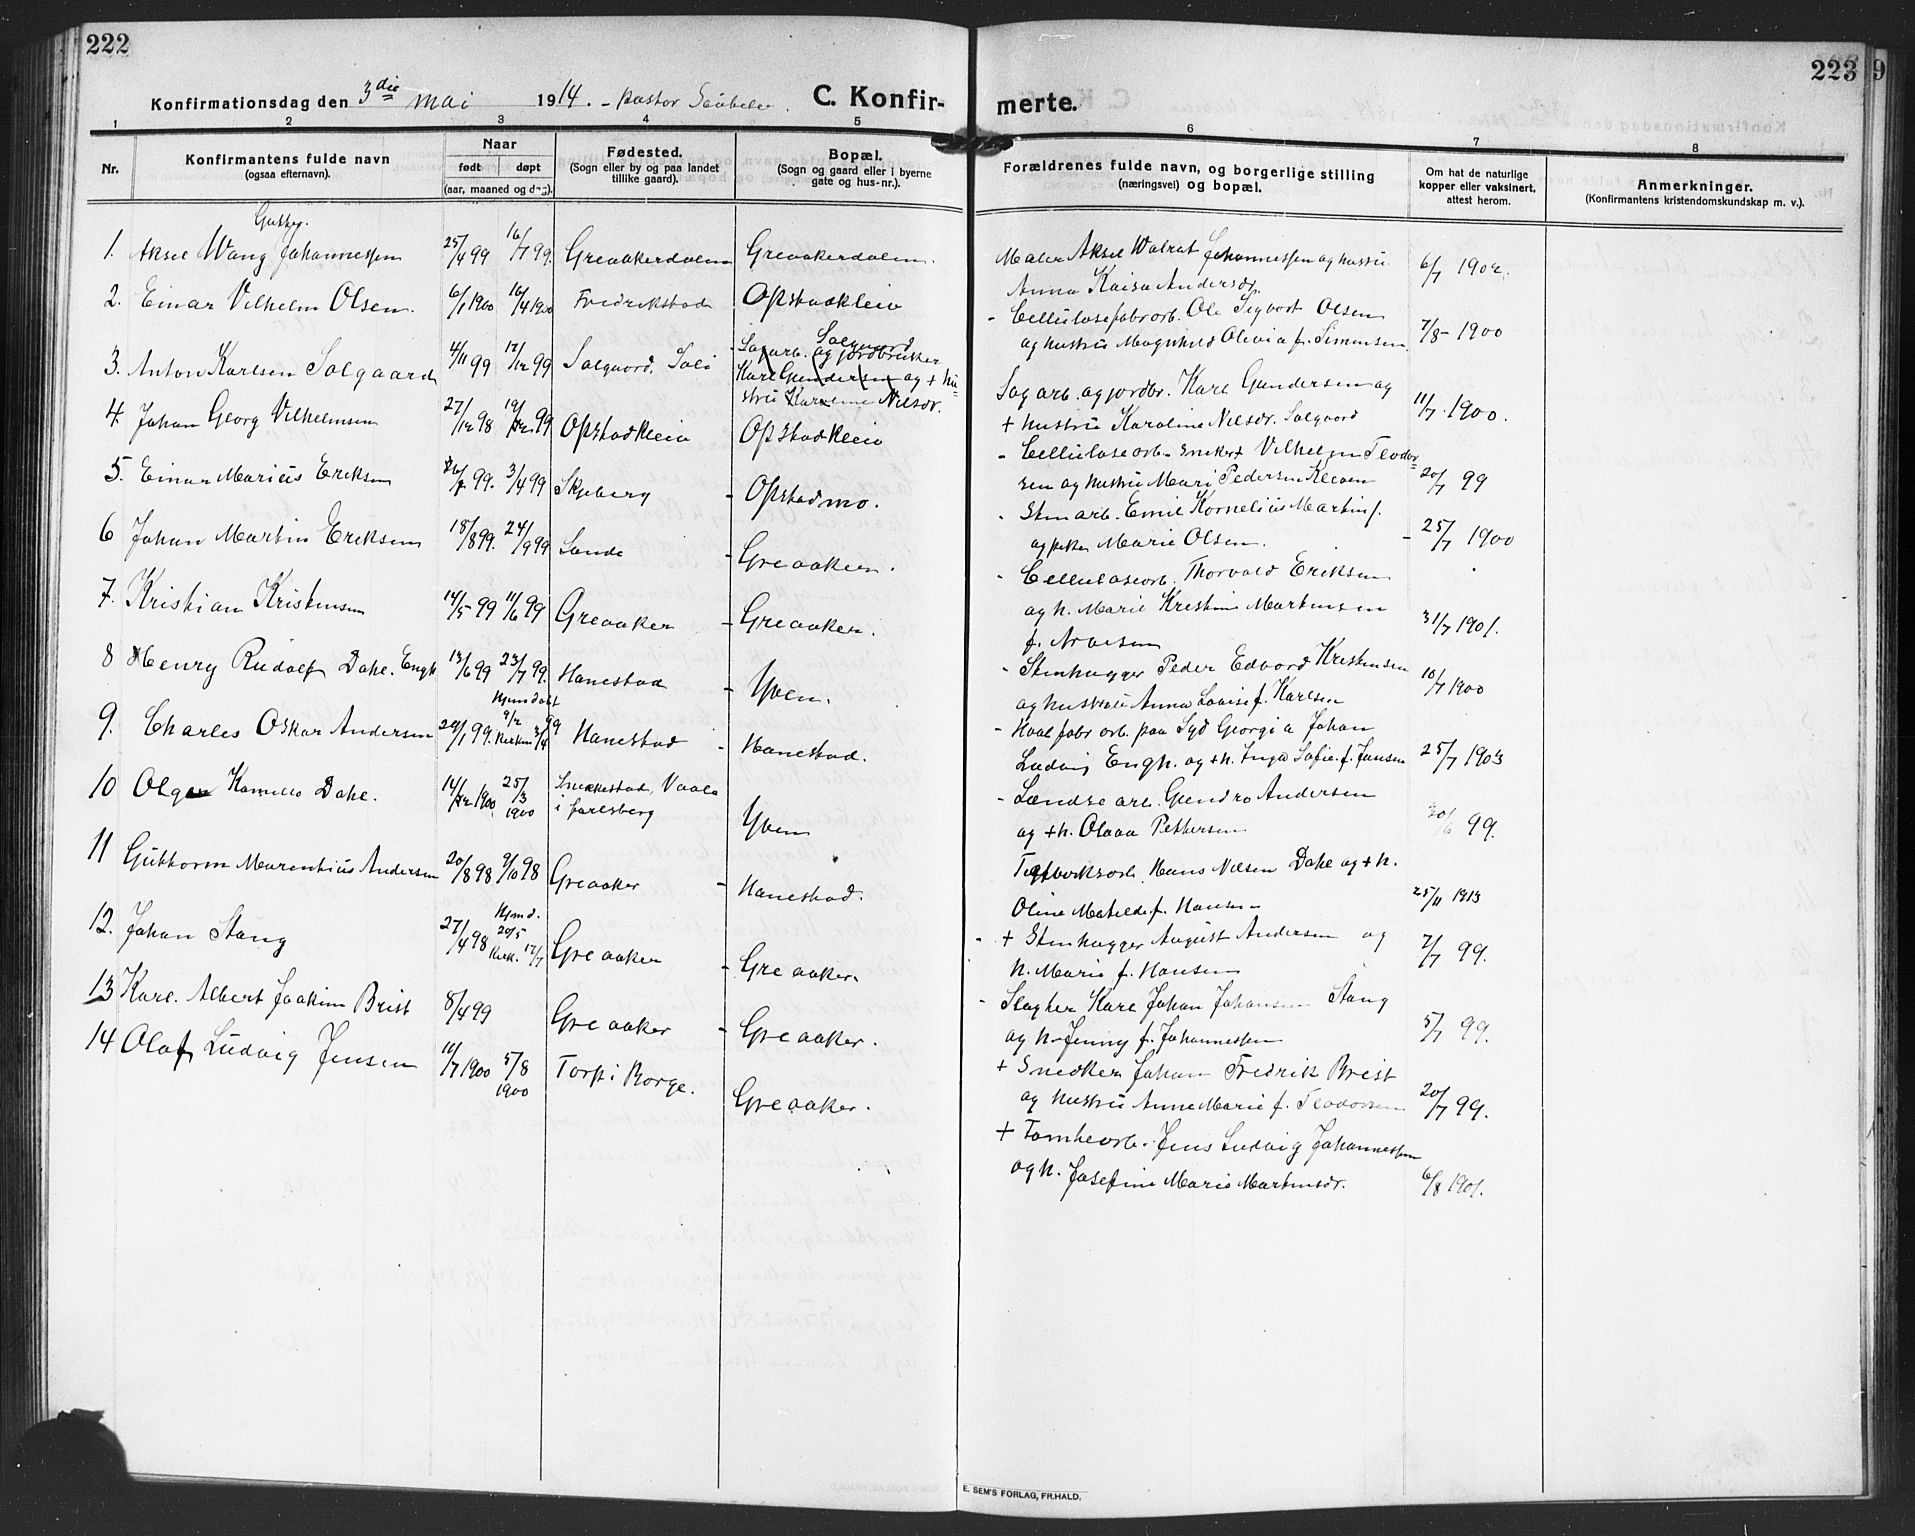 222
Konfirmationsdag den 3die mai 1914. - pastor
C. Konfir-
1 2 3 4 5
Nr.
Konfirmantens fulde navn
(ogsaa efternavn).
Naar
født døpt
(aar, maaned og dag).
Fødested.
(Sogn eller by og paa landet
tillike gaard).
Bopæl.
(Sogn og gaard eller i byerne
gate og hus-nr.).
1. Aksel Wang Johannessen 25/4 99 16/7 99. Greaakerdalen Greaakerdalen.
2. Einar Vilhelm Olsen. 6/1 1900 16/4 1900 Fredrikstad Opstadkleiv
3. Anton Karlsen Solgaard 4/11 99 17/12 99 Solgaard, Soli Solgaard
Sagarb. og jordbruker
Karl Gundersen og + hu-
stru Karoline Nilsdr.
4. Johan Georg Vilhelmsen 27/12 98 99 Opstadkleiv Opstadkleiv
5. Einar Marius Eriksen 99. 3/4 99 Skjeberg - Opstadmo.
6 Johan Martin Eriksen 18/8 99. 24/9 99 Sande - Greaaker.
7. Kristian Kristensen 14/5 99 11/6 99 Greaaker - Greaaker.
8 Henry Rudolf Dahl. Engh 13/6 99 23/7 99. Hanestad - Yven.
9. Charles Oskar Andersen 20/1 99. Hjemdøbt 9/2 99 Hanestad - Hanestad.
10 Olga Kamilla Dahl. 1900 25/3 1900 Vaale
i Jarlsberg Yven
11 Guttorm Marentius Andersen 20/8 98 9/10 98 Greaaker - Hanestad.
12. Johan Stang 27/4 98 Hjemd. 20/5 Kirk. 17/7 Greaaker - Greaaker.
13 Karl. Albert Joakim Brist 8/4 99 Greaaker - Greaaker.
14 Olaf Ludvig Jensen 1900 5/8 1900 Torp i Borge. Greaaker.
223
9
merte.
6 7 8
Forældrenes fulde navn, og borgerlige stilling
(næringsvei) og bopæl.
Om hat de naturlige
kopper eller vaksinert,
attest herom.
Anmerkninger.
(Konfirmantens kristendomskundskap m. v.).
Maler Aksel Walrat Johannessen og hustru 6/7 1902.
Anna Kaisa Andersdr.
- Cellulosefabrarb. Ole Sigvart Olsen
og hustru Magnhild Olivia f. Simensen. 7/8- 1900
Sagarb. og jordbr. Karl Gundersen og
+ hustru Karoline Nilsdr. Solgaard 11/7. 1900.
- Cellulosearb. snekker Vilhelm Teodor
sen og hustru Mari Pedersen Kleven 20/7 99
- Stenarb. Emil Kornelius Martin f.
og Marie Olsen. - 25/7 1900
- Cellulosearb. Thorvald Eriksen
og h. Marie Kristine Martinsen
f. Arvesen 31/7 1901.
- Stenhugger Peder Edvard Kristensen
og hustru Anna Lovise f. Karlsen 10/7 1900
- Hvalfabr arb. paa Syd Georgia Johan
Ludvig Engh. og +h. Inga Sofie f. Jansen 25/7 1903
- Lændse arb. Gundro Andersen
og +h. Olava Pettersen 20/6 99.
Teglverksarb. Hans Nilsen Dahl og +h.
Oline Matilde f. Hansen 25/11 1913
- + Stenhugger August Andersen og
h. Marie f. Hansen 7/7 99.
- Slagter Karl Johan Johansen Stang
og h. Jenny f. Johannessen 5/7 99.
+ Snedker Johan Fredrik Brist
og hustru Anne Marie f. Teodorsen 20/7 99.
+ Tomtearb. Jens Ludvig Johannessen
og h. Josefine Marie Martinsdr. 6/8 1901.
E. SEM'S FORLAG, FR.HALD.